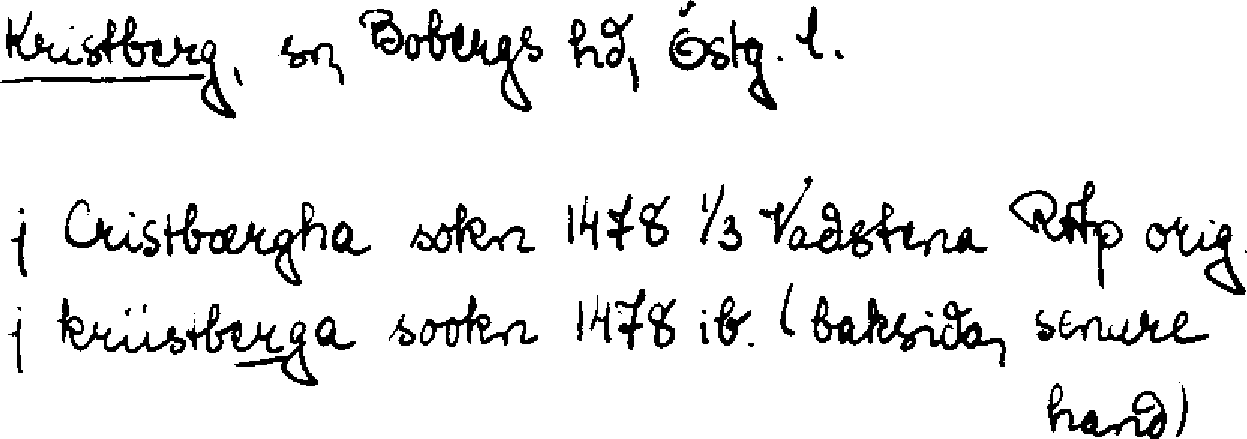 Kristberg, sn, Bobergs hd, Östg. l.
j Cristbærgha sokn 1478 1/3 Vadstena RAp orig.
j kriistberga sookn 1478 ib. (baksida, senare
hand)